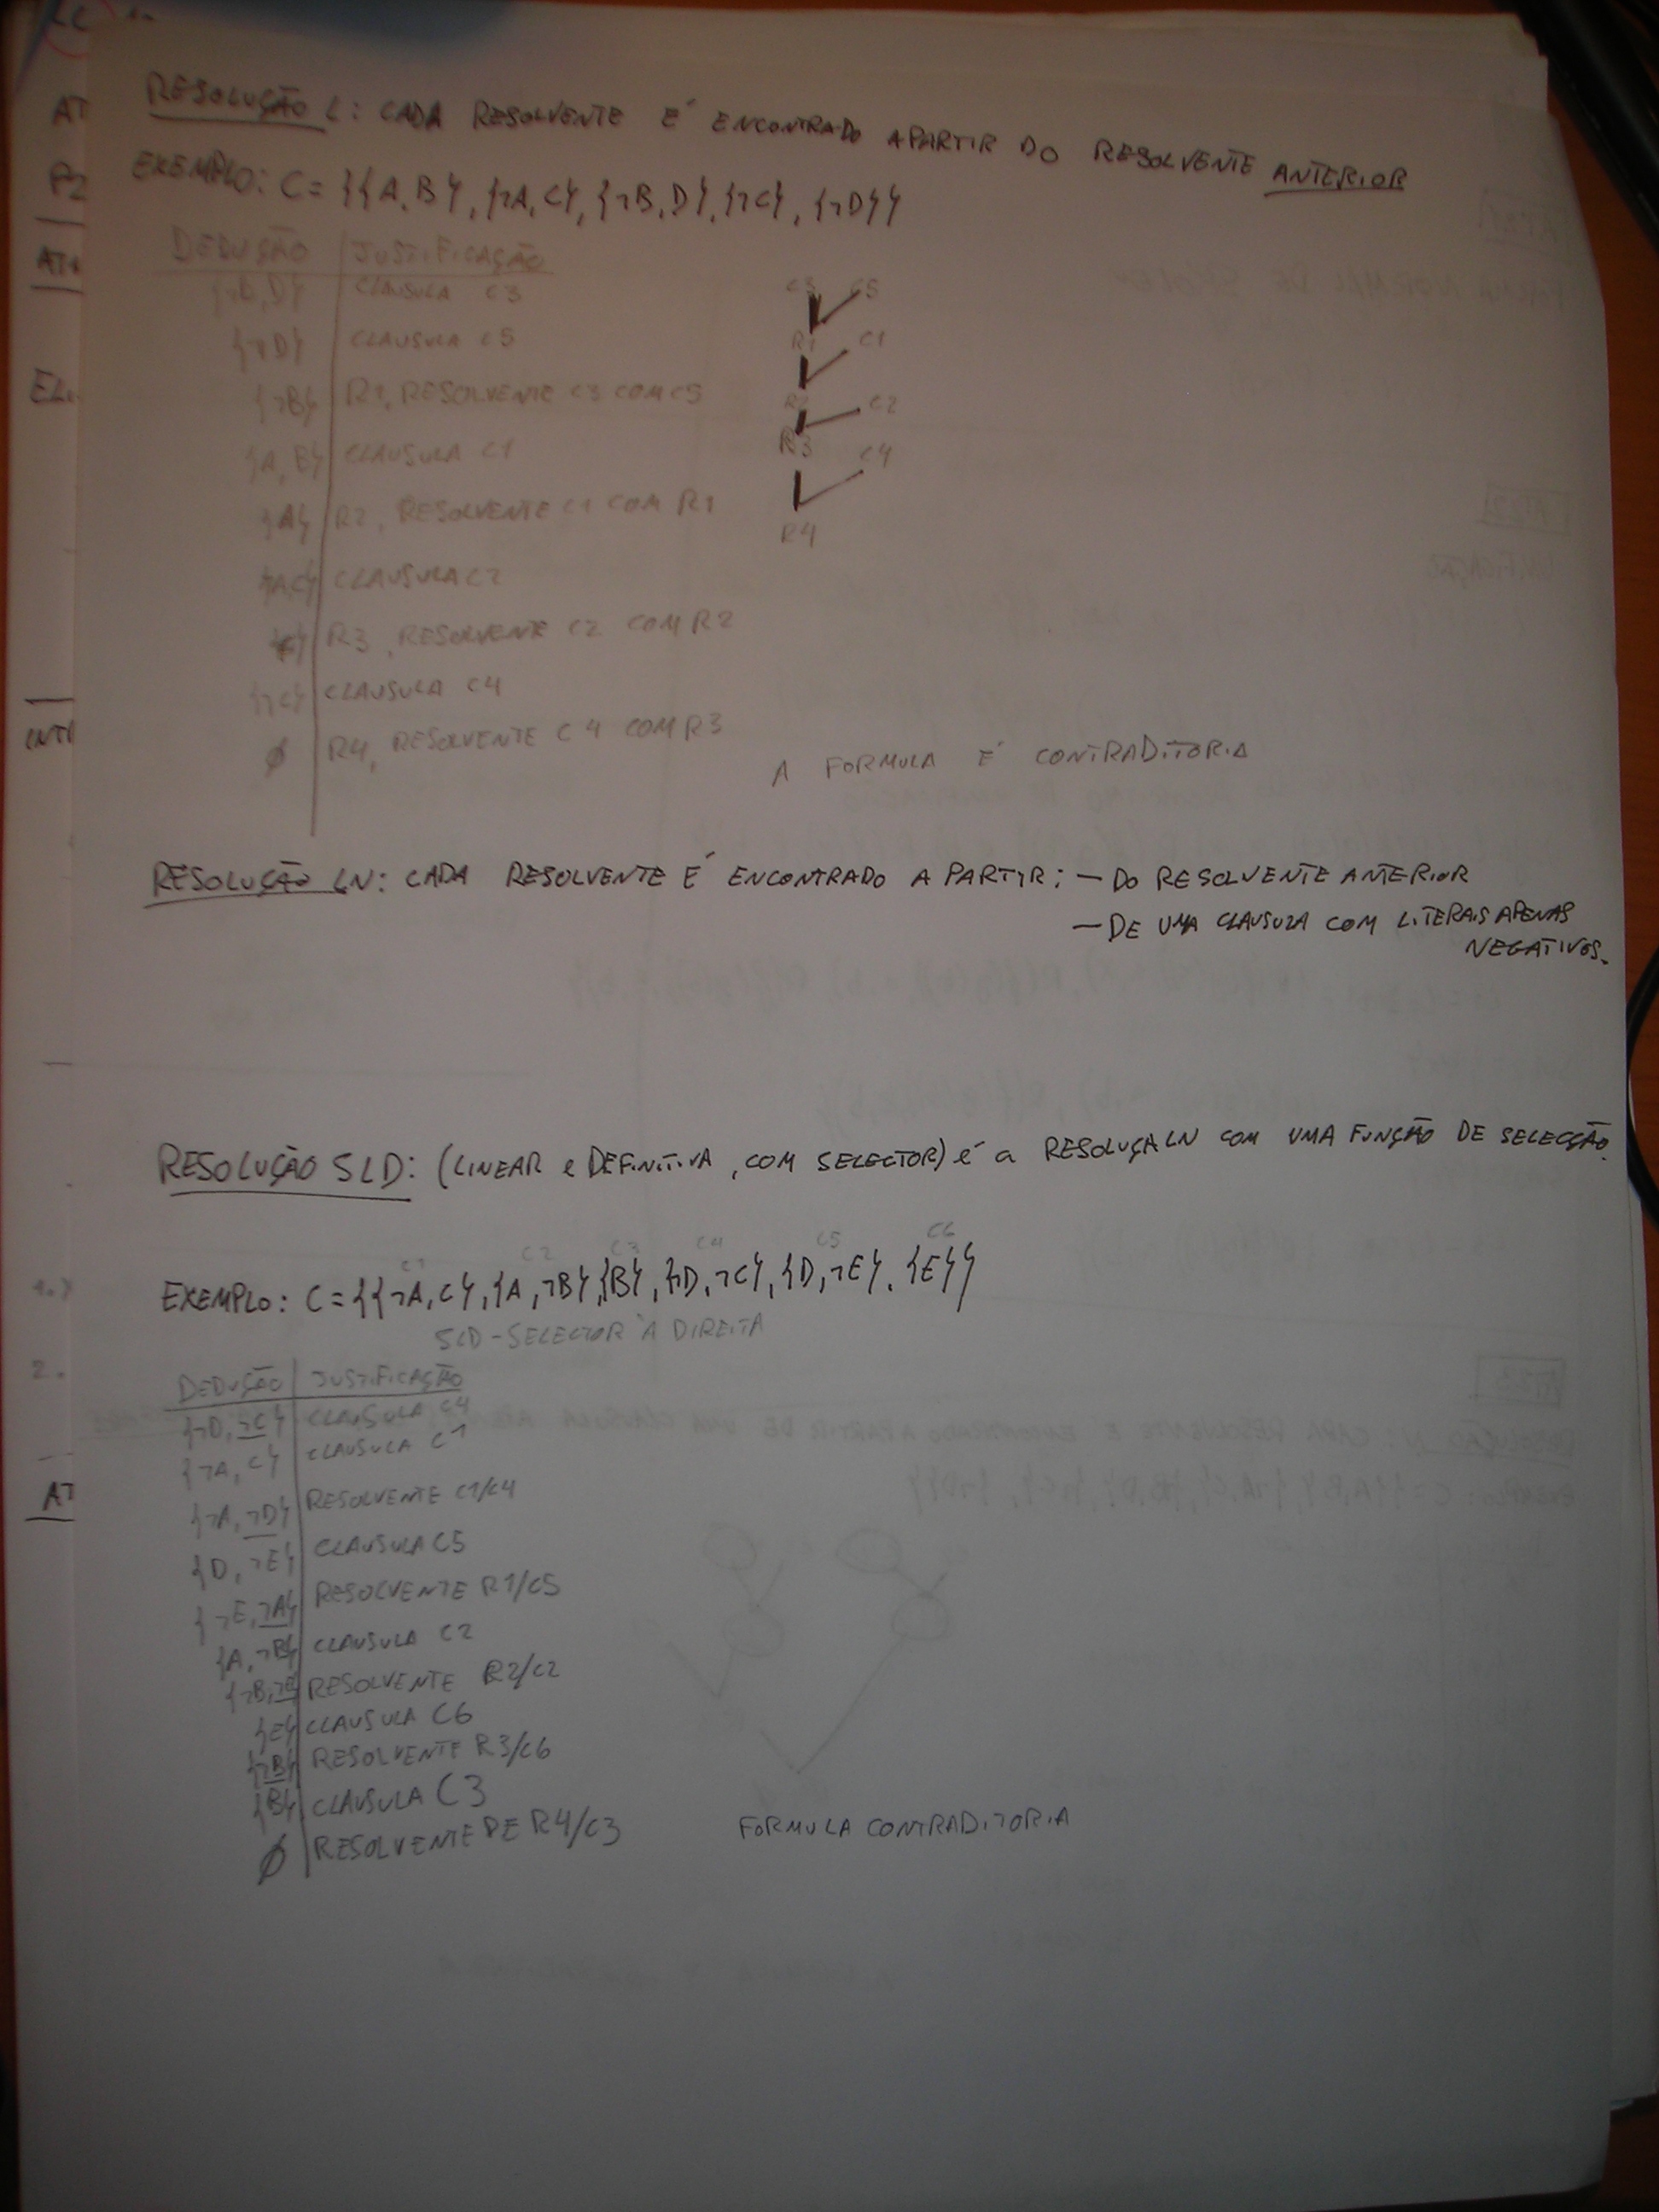 RESOLUÇÃO L: CADA RESOLVENTE É ENCONTRADO APARTIR DO RESOLVENTE ANTERIOR
EXEMPLO: C = {{A, B}, {¬A, C}, {¬B, D}, {¬C}, {¬D}}
DEDUÇÃO | JUSTIFICAÇÃO
{¬B, D} | CLAUSULA C3
{¬D} | CLAUSULA C5
{¬B} | R1, RESOLVENTE C3 COM C5
{A, B} | CLAUSULA C1
{A} | R2, RESOLVENTE C1 COM R1
{¬A, C} | CLAUSULA C2
{C} | R3, RESOLVENTE C2 COM R2
{¬C} | CLAUSULA C4
∅ | R4, RESOLVENTE C4 COM R3
C3 C5
R1 C1
R2 C2
R3 C4
R4
A FORMULA É CONTRADITORIA
RESOLUÇÃO LN: CADA RESOLVENTE É ENCONTRADO A PARTIR: — DO RESOLVENTE ANTERIOR
— DE UMA CLAUSULA COM LITERAIS APENAS
NEGATIVOS.
RESOLUÇÃO SLD: (LINEAR e DEFINITIVA, COM SELECTOR) é a RESOLUÇALN COM UMA FUNÇÃO DE SELECÇÃO.
C1 C2 C3 C4 C5 C6
EXEMPLO: C = {{¬A, C}, {A, ¬B}, {B}, {¬D, ¬C}, {D, ¬E}, {E}}
SLD - SELECTOR À DIREITA
DEDUÇÃO | JUSTIFICAÇÃO
{¬D, ¬C} | CLAUSULA C4
{¬A, C} | CLAUSULA C1
{¬A, ¬D} | RESOLVENTE C1/C4
{D, ¬E} | CLAUSULA C5
{¬E, ¬A} | RESOLVENTE R1/C5
{A, ¬B} | CLAUSULA C2
{¬B, ¬E} | RESOLVENTE R2/C2
{E} | CLAUSULA C6
{¬B} | RESOLVENTE R3/C6
{B} | CLAUSULA C3
∅ | RESOLVENTE DE R4/C3
FORMULA CONTRADITORIA